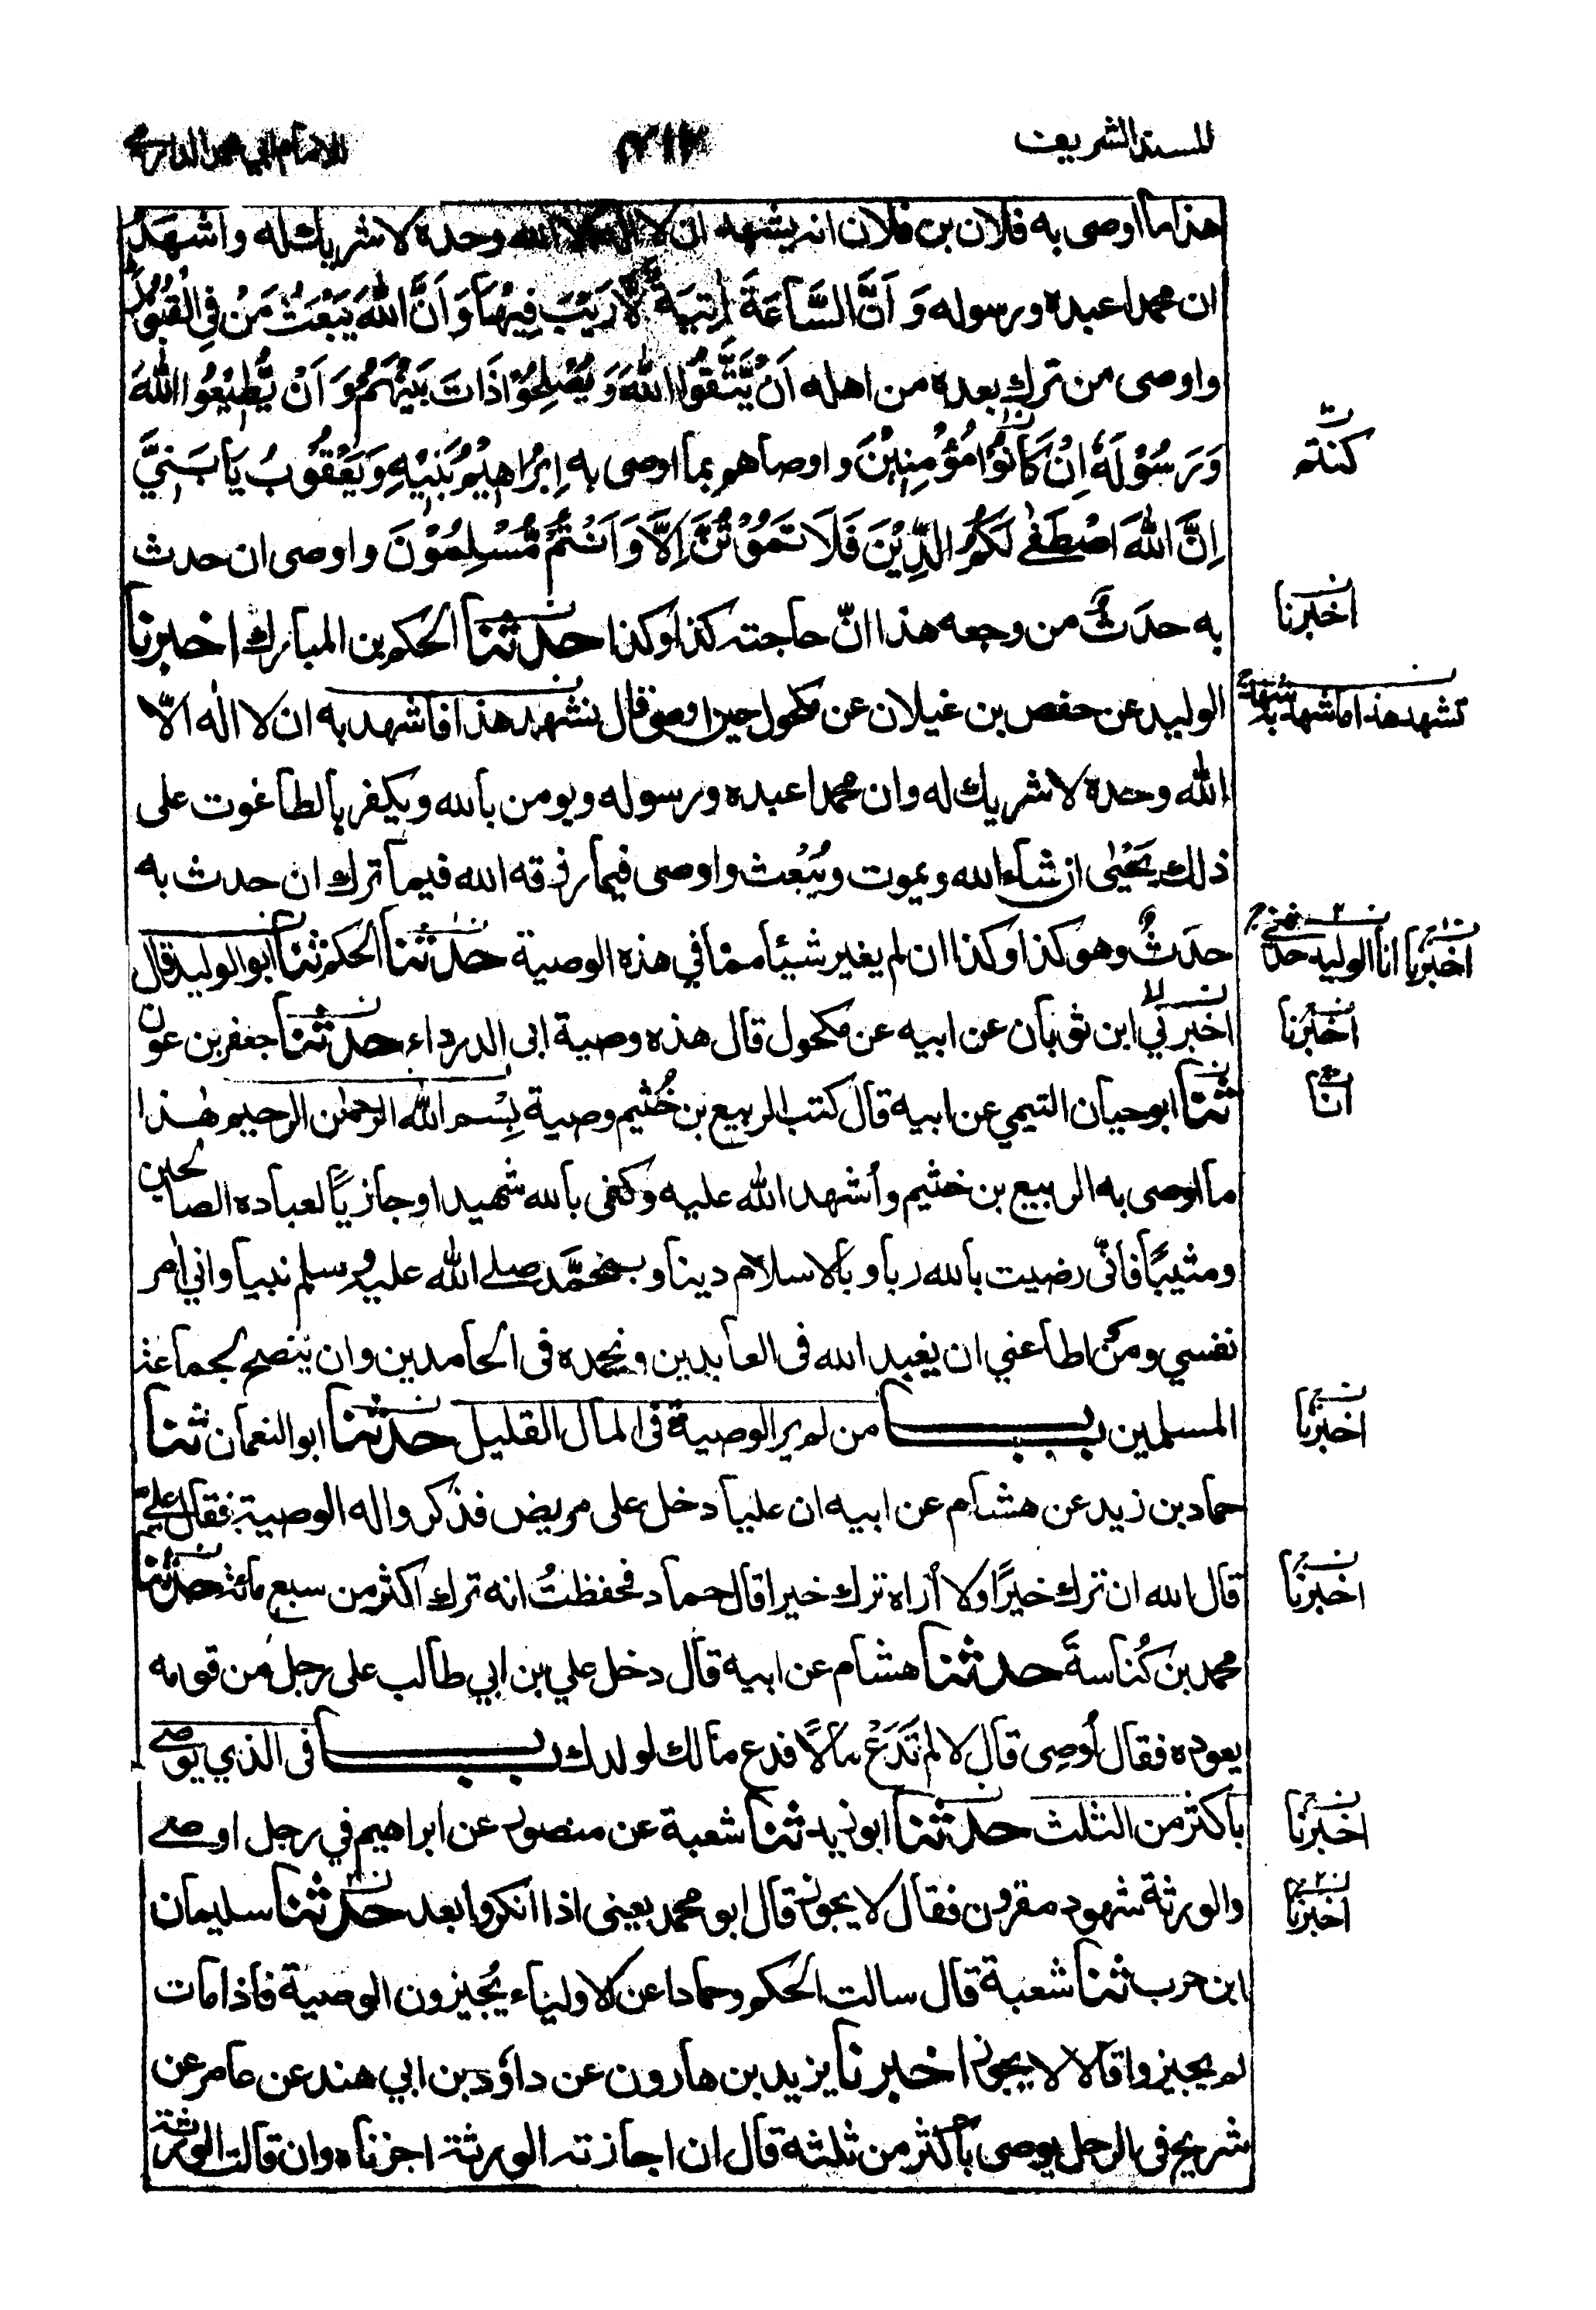 للمسند الشريف
٤١٢
للامام ابي محمد الدارمي
هذا ما اوصى به فلان بن فلان انه يشهد ان لا اله الا الله وحده لا شريك له واشهد
ان محمدا عبده ورسوله وَ اَنَّ السَّاعَةَ اٰتِيَةٌ لَّا رَيْبَ فِيْهَا وَ اَنَّ اللّٰهَ يَبْعَثُ مَنْ فِي الْقُبُوْرِ
واوصى من ترك بعده من اهله اَنْ يَّتَّقُوا اللّٰهَ وَ يُصْلِحُوْا ذَاتَ بَيْنِهِمْ وَ اَنْ يُّطِيْعُوا اللّٰهَ
وَرَسُوْلَهٗ اِنْ كَانُوْا مُؤْمِنِيْنَ واوصاهم بما اوصى به اِبْرَاهِيْمُ بَنِيْهِ وَيَعْقُوْبُ يَا بَنِيَّ
كنتم
اِنَّ اللّٰهَ اصْطَفٰى لَكُمُ الدِّيْنَ فَلَا تَمُوْتُنَّ اِلَّا وَاَنْتُمْ مُّسْلِمُوْنَ واوصى ان حدث
به حدَثٌ من وجعه هذا انّ حاجته كذا وكذا حدثنا الحكم بن المبارك اخبرنا
اخبرنا
الوليد عن حفص بن غيلان عن مكحول حين اوصى قال نشهد هذا فاشهد به ان لا اله الّا
تشهد هذا ما شهد به
الله وحده لا شريك له وان محمدا عبده ورسوله ويومن بالله ويكفر بالطاغوت على
ذلك يَحْيٰى ان شاء الله ويموت ويُبْعث واوصى فيما رزقه الله فيما ترك ان حدث به
حدَثٌ وهو كذا وكذا ان لم يغير شيئا مما في هذه الوصية حدثنا الحكم ثنا ابو الوليد قال
اخبرنا انا الوليد
اخبرني ابن ثوبان عن ابيه عن مكحول قال هذه وصية ابى الدرداء حدثنا جعفر بن عون
اخبرنا
ثنا ابو حيان التيمي عن ابيه قال كتب الربيع بن خُثيم وصية بِسْم الله الرحمٰن الرحيم هٰذا
انا
ما اوصى به الربيع بن خثيم وأشهد الله عليه وكفى بالله شهيدا وجازيًا لعباده الصالحين
ومثيبًا فانّى رضيت بالله ربا وبالاسلام دينا وبمحمَّد صلى الله عليه وسلم نبيا واني اٰمر
نفسي ومَن اطاعني ان يعبد الله فى العابدين ونحمده فى الحامدين وان ينصح لجماعة
المسلمين باب من لم ير الوصية فى المال القليل حدثنا ابو النعمان ثنا
اخبرنا
حماد بن زيد عن هشام عن ابيه ان عليا دخل على مريض فذكروا له الوصية فقال علي
قال الله ان ترك خيرًا ولا أُراه ترك خيرا قال حماد فحفظتُ انه ترك اكثر من سبع مائة حدثنا
اخبرنا
محمد بن كُناسةَ حدثنا هشام عن ابيه قال دخل علي بن ابي طالب على رجل من قومه
يعوده فقال أُوصِى قال لا لم تَدَعْ مالًا فدع مالك لولدك باب فى الذي يوصى
باكثر من الثلث حدثنا ابو زيد ثنا شعبة عن منصور عن ابراهيم في رجل اوصى
اخبرنا
والورثة شهود مقرون فقال لا يجوز قال ابو محمد يعنى اذا انكروا بعد حدثنا سليمان
اخبرنا
ابن حرب ثنا شعبة قال سالت الحكم وحمادا عن الاولياء يُجيزون الوصية فاذا مات
لم يجيزوا قالا لا يجوز اخبرنا يزيد بن هارون عن داوٗد بن ابي هند عن عامر عن
شريح فى الرجل يوصى باكثر من ثلثه قال ان اجازته الورثة اجزناه وان قالت الورثة